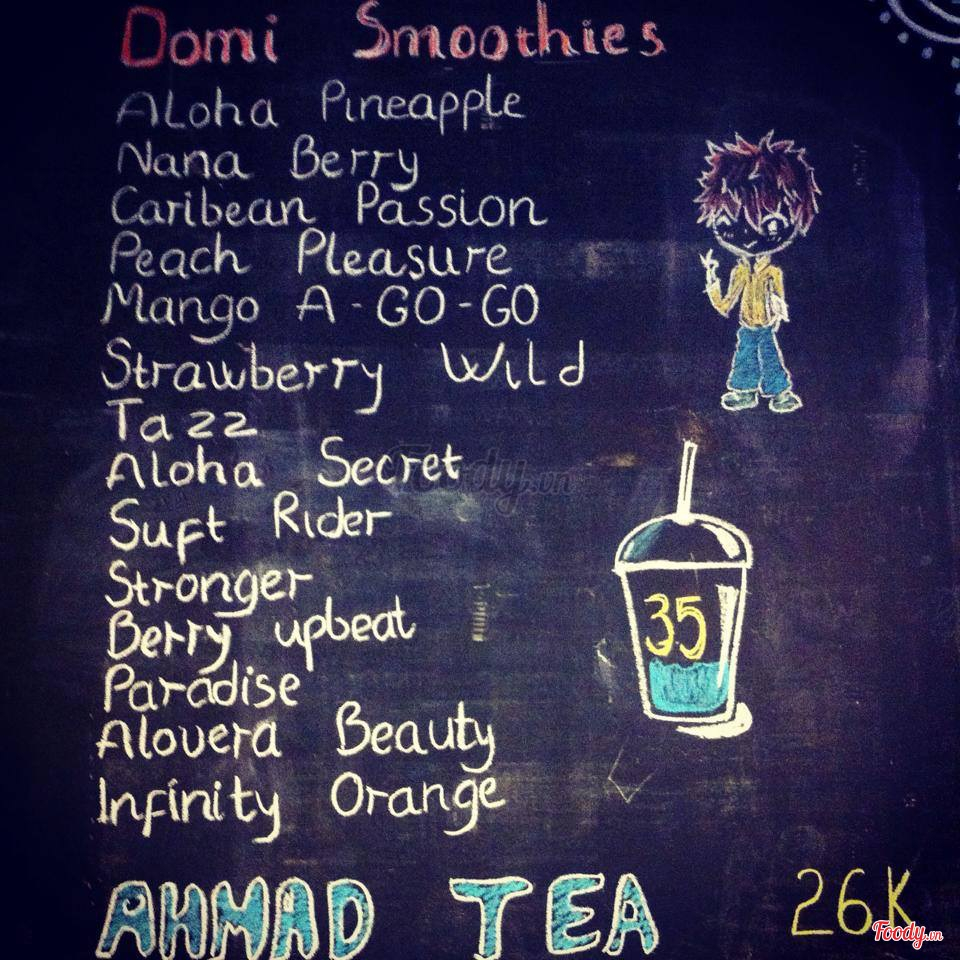 Domi Smoothies
Aloha Pineapple
Nana Berry
Caribean Passion
Peach Pleasure
Mango A-GO-GO
Strawberry Wild
Tazz
Aloha Secret
Suft Rider
Stronger
Berry upbeat
Paradise
Alovera Beauty
Infinity Orange
35
AHMAD TEA 26K
Foody.vn
Foody.vn